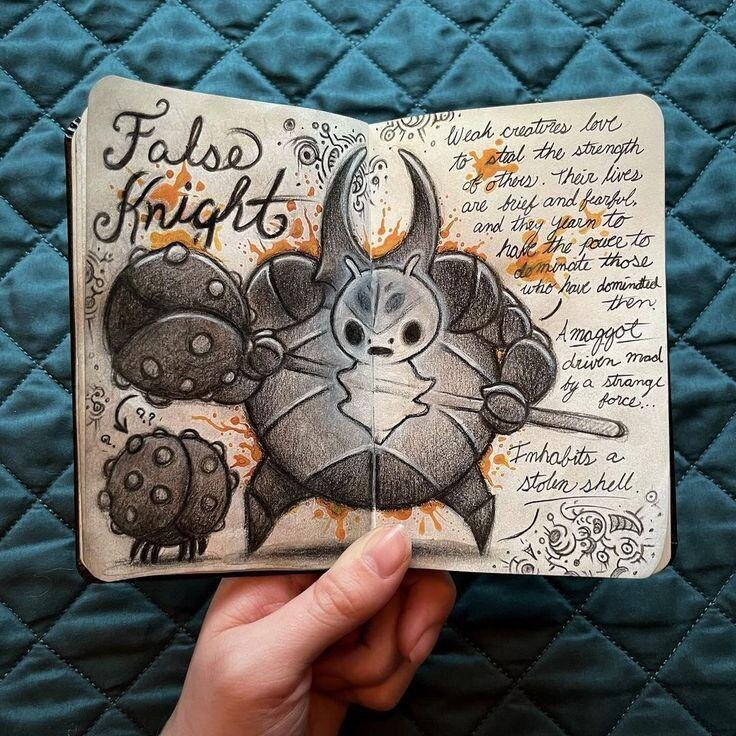 False
Knight
??
?
Weak creatures love
to steal the strength
of others. Their lives
are brief and fearful,
and they yearn to
have the power to
dominate those
who have dominated
them.
A maggot
driven mad
by a strange
force...
Inhabits a
stolen shell.